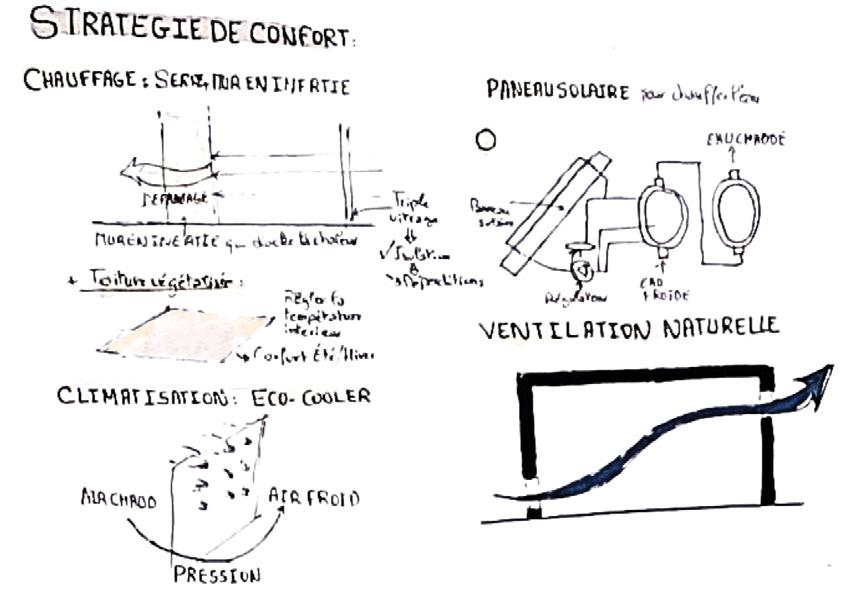 STRATEGIE DE CONFORT:
CHAUFFAGE: MUR EN INERTIE
DEPHASAGE
MUR EN INERTIE qui stocke la chaleur
Triple
vitrage
Isolation
+ Toiture végétalisée:
Régler la
température
intérieur
Confort Été/Hiver
CLIMATISATION: ECO-COOLER
AIR CHAUD
AIR FROID
PRESSION
PANEAU SOLAIRE pour chauffer l'eau
EAU CHAUDE
Panneau
solaire
Régulateur
EAU
FROIDE
VENTILATION NATURELLE